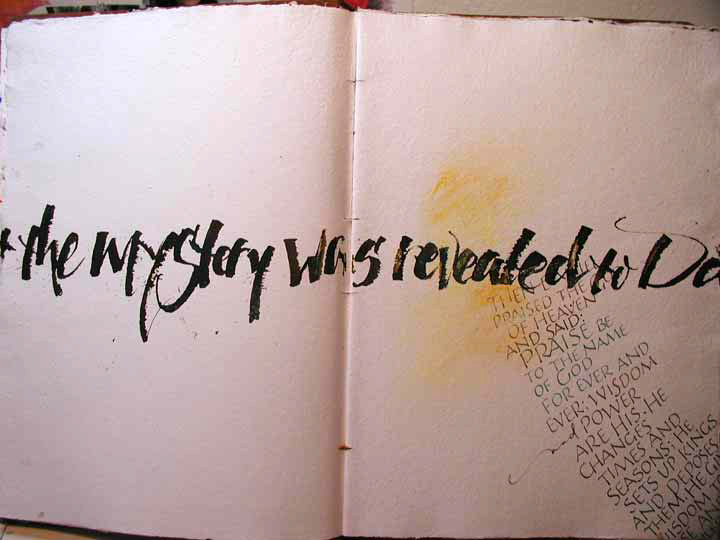 the mystery was revealed to Da
THEN
PRAISED THE
OF HEAVEN
AND SAID:
PRAISE BE
TO THE NAME
OF GOD
FOR EVER AND
EVER; WISDOM
and POWER
ARE HIS. HE
CHANGES
TIMES AND
SEASONS; HE
SETS UP KINGS
AND DEPOSES
THEM. HE GI
WISDOM